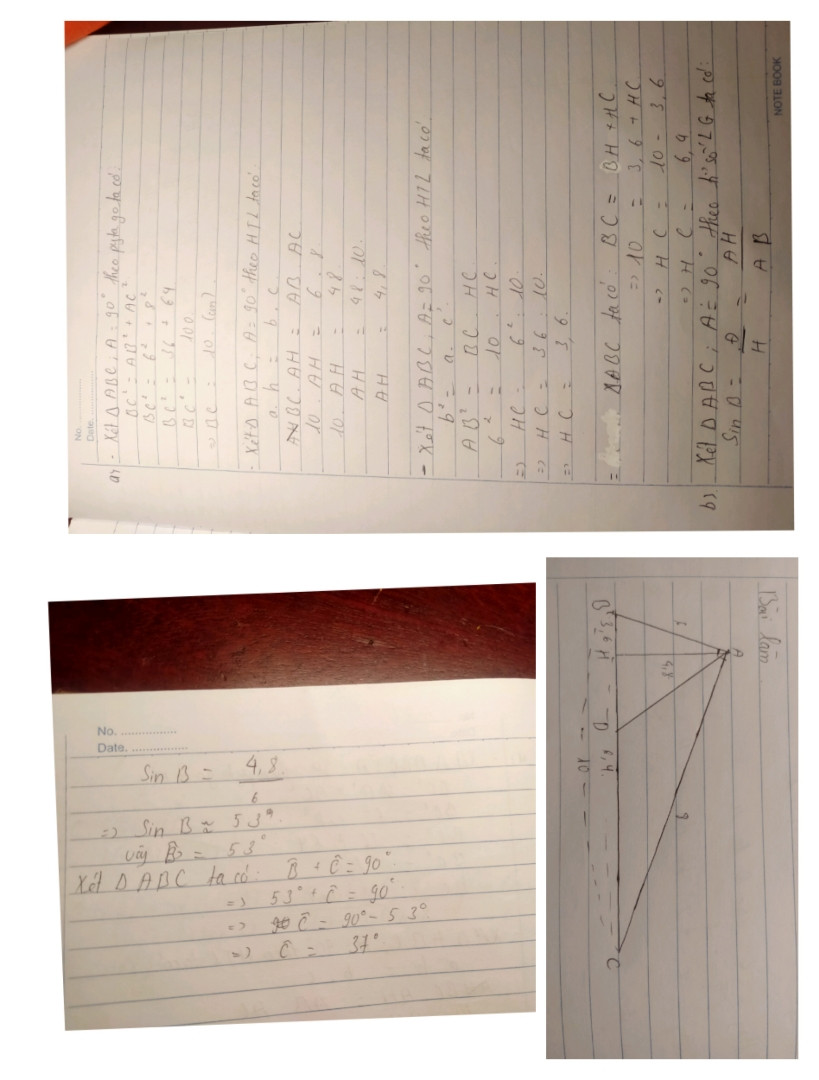 No.
Date.
a) - Xét Δ ABC; A = 90° theo pytago ta có:
BC² = AB² + AC²
BC² = 6² + 8²
BC² = 36 + 64
BC² = 100
=> BC = 10 (cm)
- Xét Δ ABC; A = 90° theo HTL ta có:
a. h = b. c
BC. AH = AB. AC
10. AH = 6. 8
10. AH = 48
AH = 48: 10.
AH = 4,8
- Xét Δ ABC, A = 90° theo HTL ta có:
b² = a. c'
AB² = BC. HC
6² = 10. HC.
=> HC = 6²: 10.
=> HC = 36: 10.
=> HC = 3,6.
= ΔABC ta có: BC = BH + HC
=> 10 = 3,6 + HC
=> HC = 10 - 3,6
=> HC = 6,4
b) Xét Δ ABC; A = 90° theo LG ta có:
Sin B = Đ/H = AH/AB
NOTE BOOK
No.
Date.
Sin B = 4,8/6
=> Sin B ≈ 53°.
vậy B = 53°
Xét Δ ABC ta có: B̂ + Ĉ = 90°
=> 53° + Ĉ = 90°
=> Ĉ = 90° - 53°
=> Ĉ = 37°
Bài làm
A
4,8
B 3,6 H D 6,4 C
10